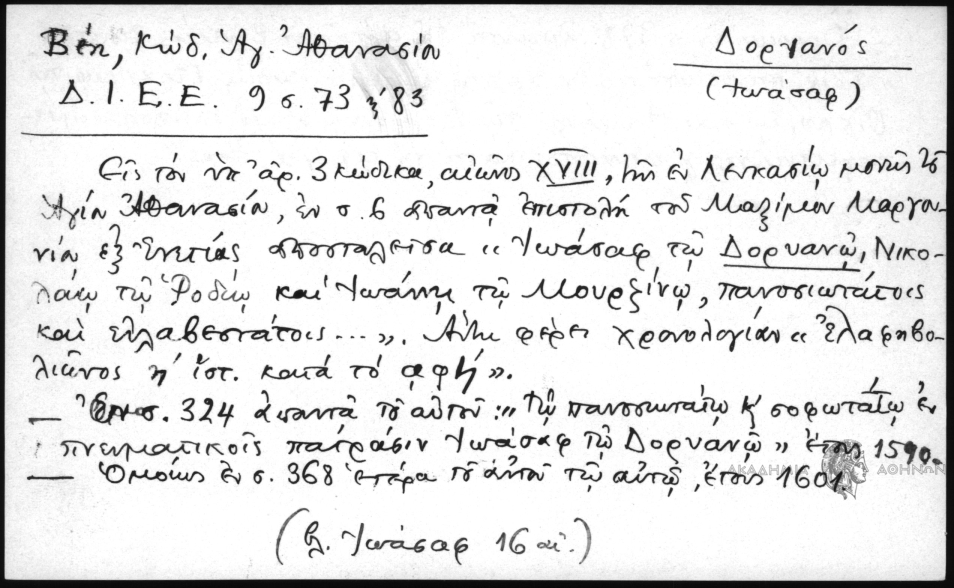 Βέη, Κώδ. Ἁγ. Ἀθανασίου
Δορυανός
(Ἰωάσαφ)
Δ. Ι. Ε. Ε. 9 σ. 73 κ' 83
Εἰς τόν ὑπ' ἀρ. 3 κώδικα, αἰῶνος XVIII, τῆς ἐν Λευκασίῳ μονῆς τοῦ
Ἁγίου Ἀθανασίου, ἐν σ. 6 ἀπαντᾷ ἐπιστολή τοῦ Μαξίμου Μαργου-
νίου ἐξ Ἑνετίας ἀποσταλεῖσα «Ἰωάσαφ τῷ Δορυανῷ, Νικο-
λάῳ τῷ Ῥοδίῳ καί Ἰωάννῃ τῷ Μουρξίνῳ, πανοσιωτάτοις
καί εὐλαβεστάτοις...». Αὕτη φέρει χρονολογίαν «Ἐλαφηβο-
λιῶνος η' ἱστ. κατά τό αφϞ».
— Ἐν σ. 324 ἀπαντᾷ τοῦ αὐτοῦ: «τῷ πανοσιωτάτῳ κ' σοφωτάτῳ ἐν
πνευματικοῖς πατράσιν Ἰωάσαφ τῷ Δορυανῷ» ἔτους 1590.
— Ὁμοίως ἐν σ. 368 ἑτέρα τοῦ αὐτοῦ τῷ αὐτῷ, ἔτους 1601.
ΑΚΑΔΗΜΙΑ ΑΘΗΝΩΝ
(βλ. Ἰωάσαφ 16 αἰ.)